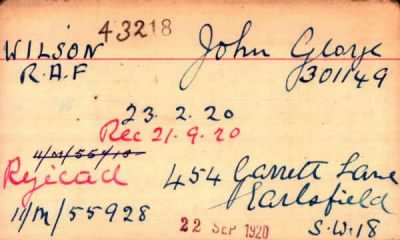 43218
WILSON John George
R.A.F 301149
23.2.20
Rec 21.9.20
Rejicad 454 Garrett Lane
Earlsfield
11/M/55928 22 SEP 1920 S.W.18